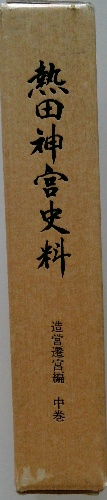 熱田神宮史料
造営遷宮編 中巻